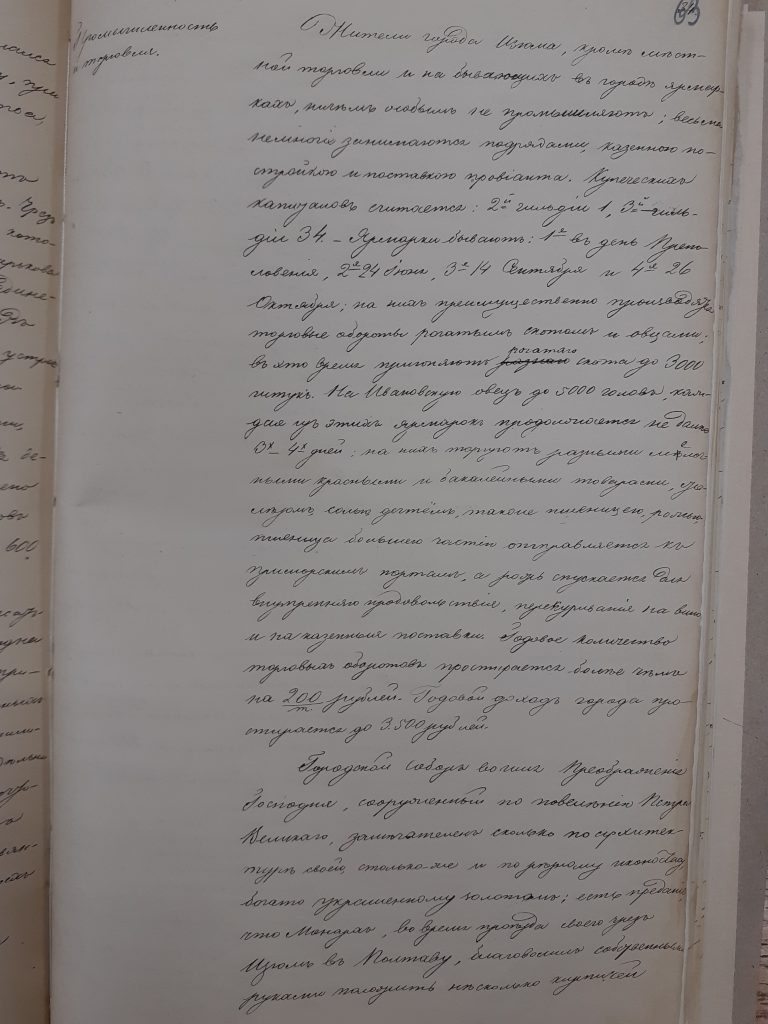 63
Промышленность
и торговля.
Жители города Изюма, кромѣ мѣст-
ной торговли и на бывающихъ въ городѣ ярмар-
кахъ, ничѣмъ особымъ не промышляютъ; весьма
немногіе занимаются подрядами, казенною по-
стройкою и поставкою провіанта. Купеческихъ
капиталовъ считается: 2й гильдіи 1, 3й гиль-
діи 34. – Ярмарки бываютъ: 1я въ день Препо-
ловенія, 2я 24 Іюня, 3я 14 Сентября и 4я 26
Октября; на нихъ преимущественно производятся
торговые обороты рогатымъ скотомъ и овцами;
въ это время пригоняютъ рогатаго скота до 3000
штукъ. На Ивановскую овецъ до 5000 головъ, каж-
дая изъ этихъ ярмарокъ продолжается не далѣе
3х – 4х дней; на нихъ торгуютъ разными мелоч-
ными красными и бакалейными товарами, же-
лѣзомъ, солью, дегтёмъ, также пшеницею, рожью,
пшеница большею частію отправляется къ
приморскимъ портамъ, а рожь спускается для
внутренняго продовольствія, перекуриванія на вино
и на казенныя поставки. Годовое количество
торговыхъ оборотовъ простирается болѣе чѣмъ
на 200/т. рублей. Годовой доходъ города про-
стирается до 3.500 рублей.
Городской Соборъ во имя Преображенія
Господня, сооруженный по повелѣнію Петра
Великаго, замѣчателенъ сколько по архитек-
турѣ своей, столько-же и по рѣзному иконостасу,
богато украшенному золотомъ; есть преданіе,
что Монархъ, во время проѣзда своего чрезъ
Изюмъ въ Полтаву, благоволилъ собственными
руками положить нѣсколько кирпичей